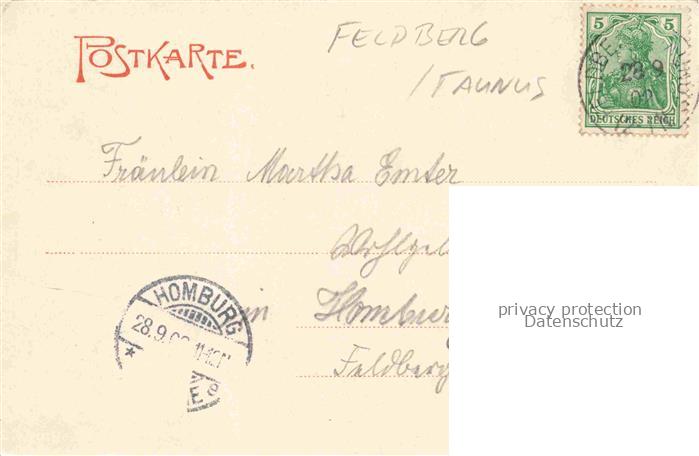 POSTKARTE.
FELDBERG
/TAUNUS
5 5
DEUTSCHES REICH
28 9
02
Fräulein Martha Emter
Wohlgeb
in Hombur
Feldberg
HOMBURG
28.9.02 11-12N
* e
privacy protection
Datenschutz